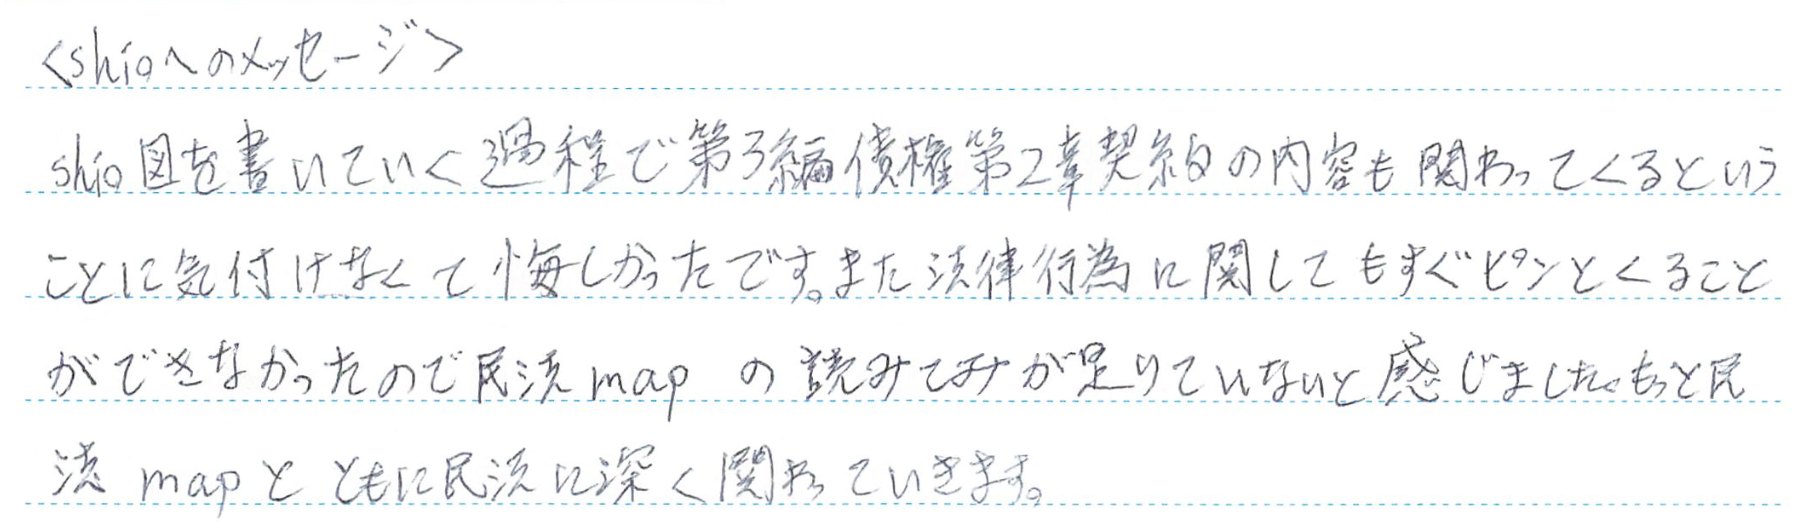 <shioへのメッセージ>
shio図を書いていく過程で第3編債権第2章契約の内容も関わってくるという
ことに気付けなくて悔しかったです。また法律行為に関してもすぐピンとくること
ができなかったので民法mapの読みこみが足りていないと感じました。もっと民
法mapとともに民法に深く関わっていきます。